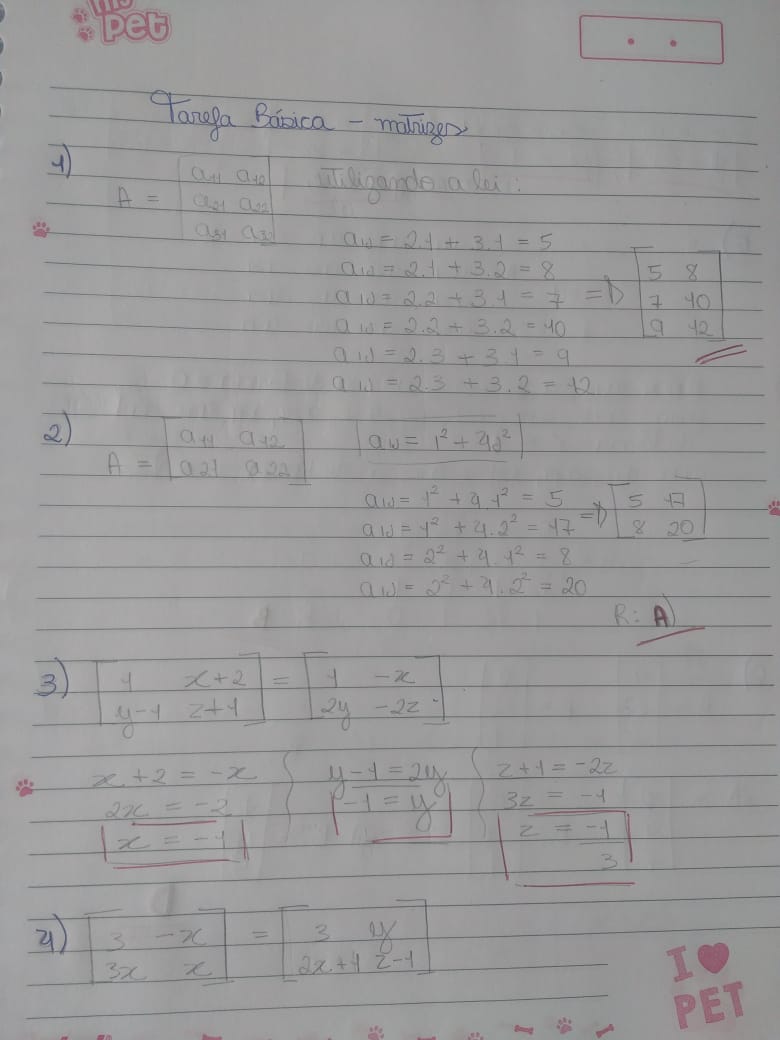 my
pet
Tarefa Básica - matrizes
1)
A = [a11 a12
a21 a22
a31 a32]
utilizando a lei:
aij = 2.1 + 3.1 = 5
aij = 2.1 + 3.2 = 8
aij = 2.2 + 3.1 = 7 => [5 8
aij = 2.2 + 3.2 = 10 7 10
aij = 2.3 + 3.1 = 9 9 12]
aij = 2.3 + 3.2 = 12
2)
A = [a11 a12
a21 a22]
aij = i² + 4j²
aij = 1² + 4.1² = 5 => [5 17
aij = 1² + 4.2² = 17 8 20]
aij = 2² + 4.1² = 8
aij = 2² + 4.2² = 20
R: A)
3) [1 x+2 = [1 -x
y-1 z+1] 2y -2z]
x + 2 = -x { y-1 = 2y { z+1 = -2z
2x = -2 -1 = y 3z = -1
x = -1 z = -1
3
4) [3 -x = [3 y
3x x] 2x+1 z-1]
I ♥
PET